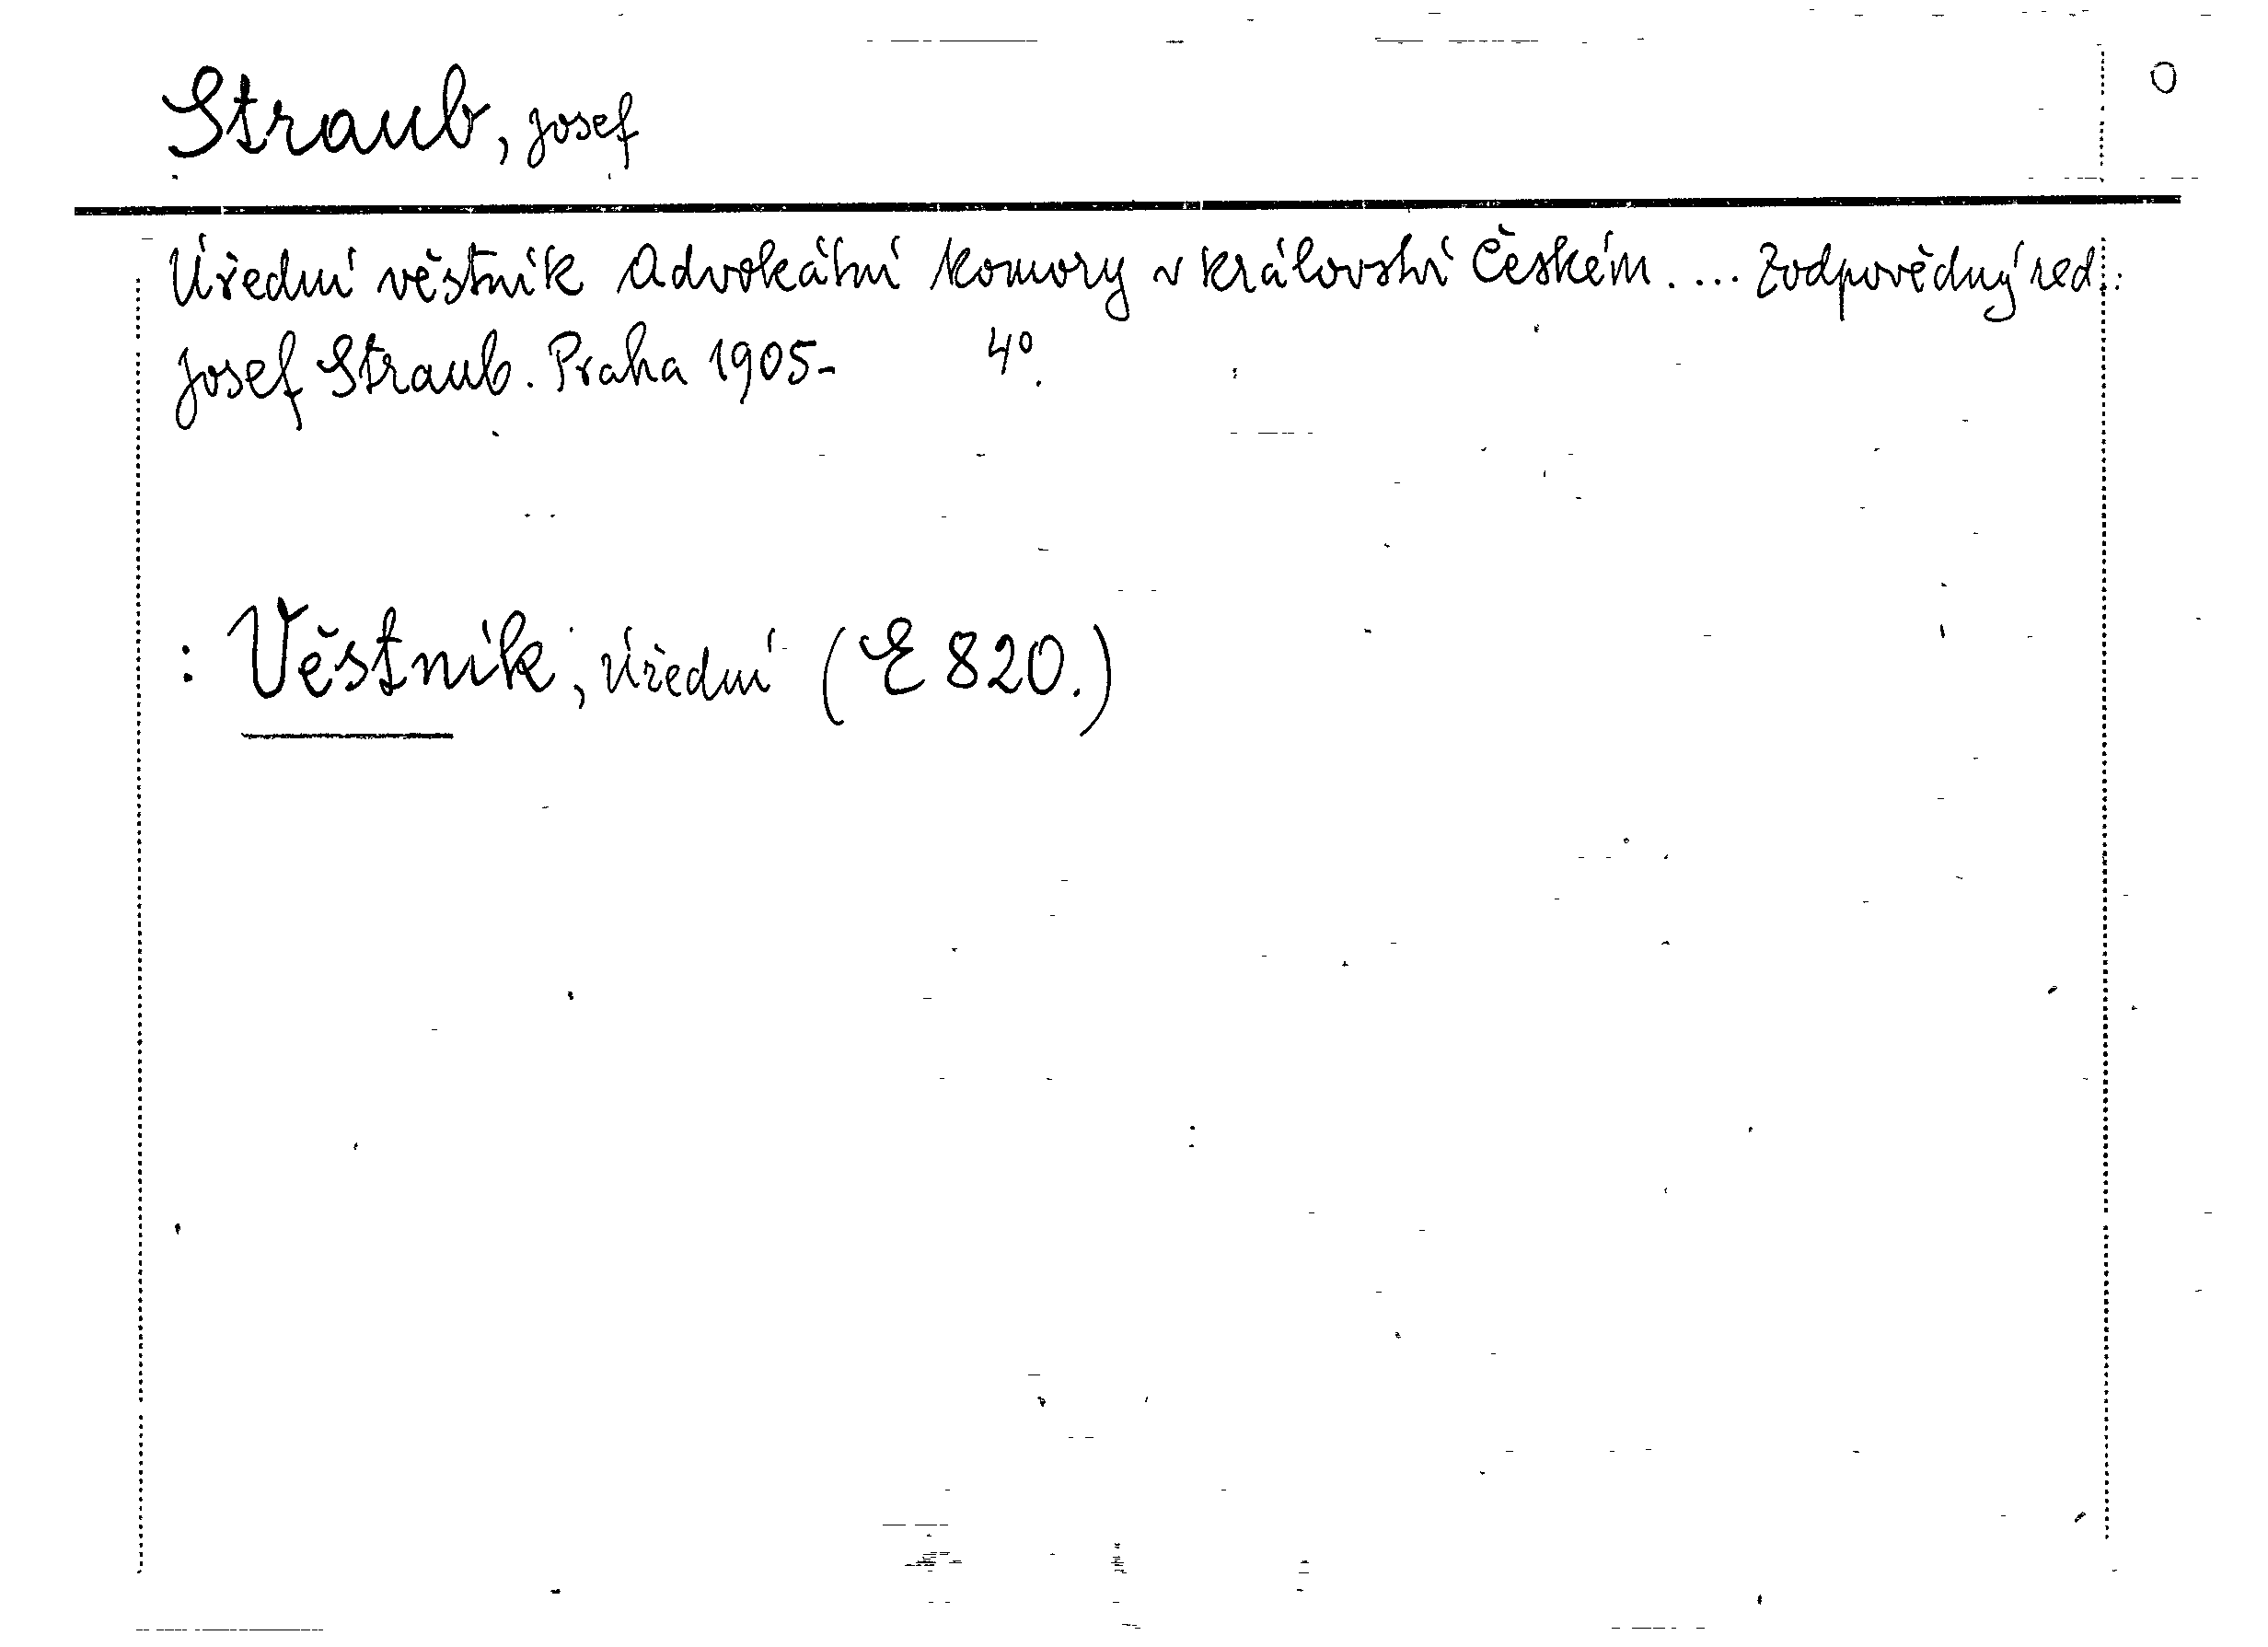 Straub, Josef
O
Úřední věstník Advokátní komory v království Českém. ... Zodpovědný red.:
Josef Straub. Praha 1905- 4°.
: Věstník, úřední (E 820.)